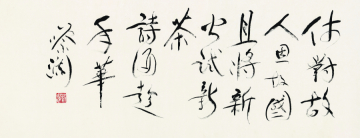 休對故
人思故國
且將新
火試新
茶
詩酒趁
年華